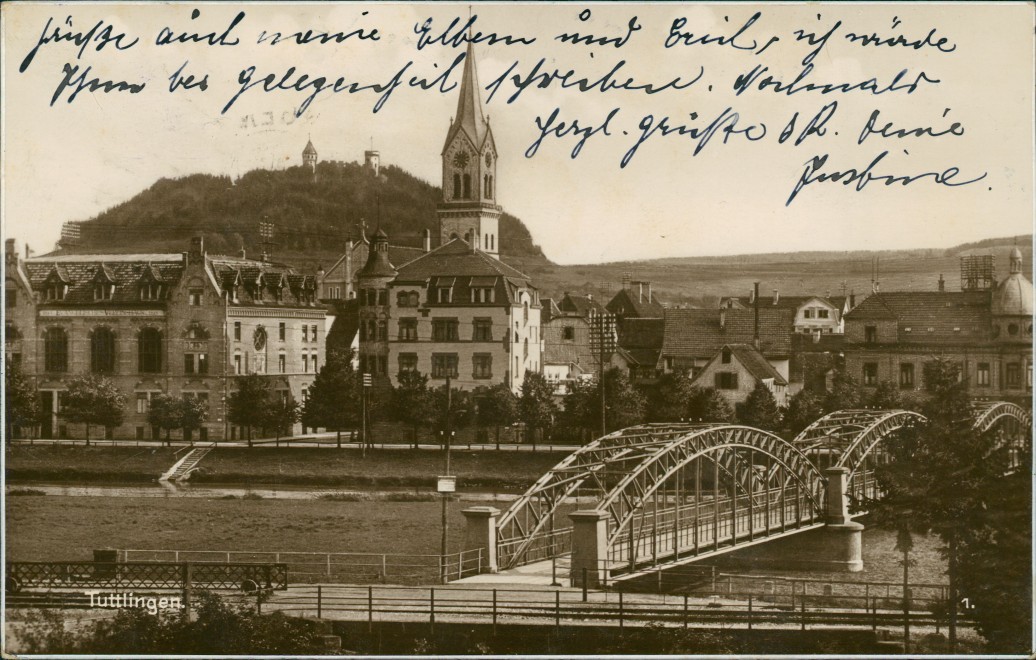 Grüße auch meine Eltern und Erich, ich würde
Ihnen bei Gelegenheit schreiben. Nochmals
herzl. Grüße & K. Deine
Tuttlingen.
1.